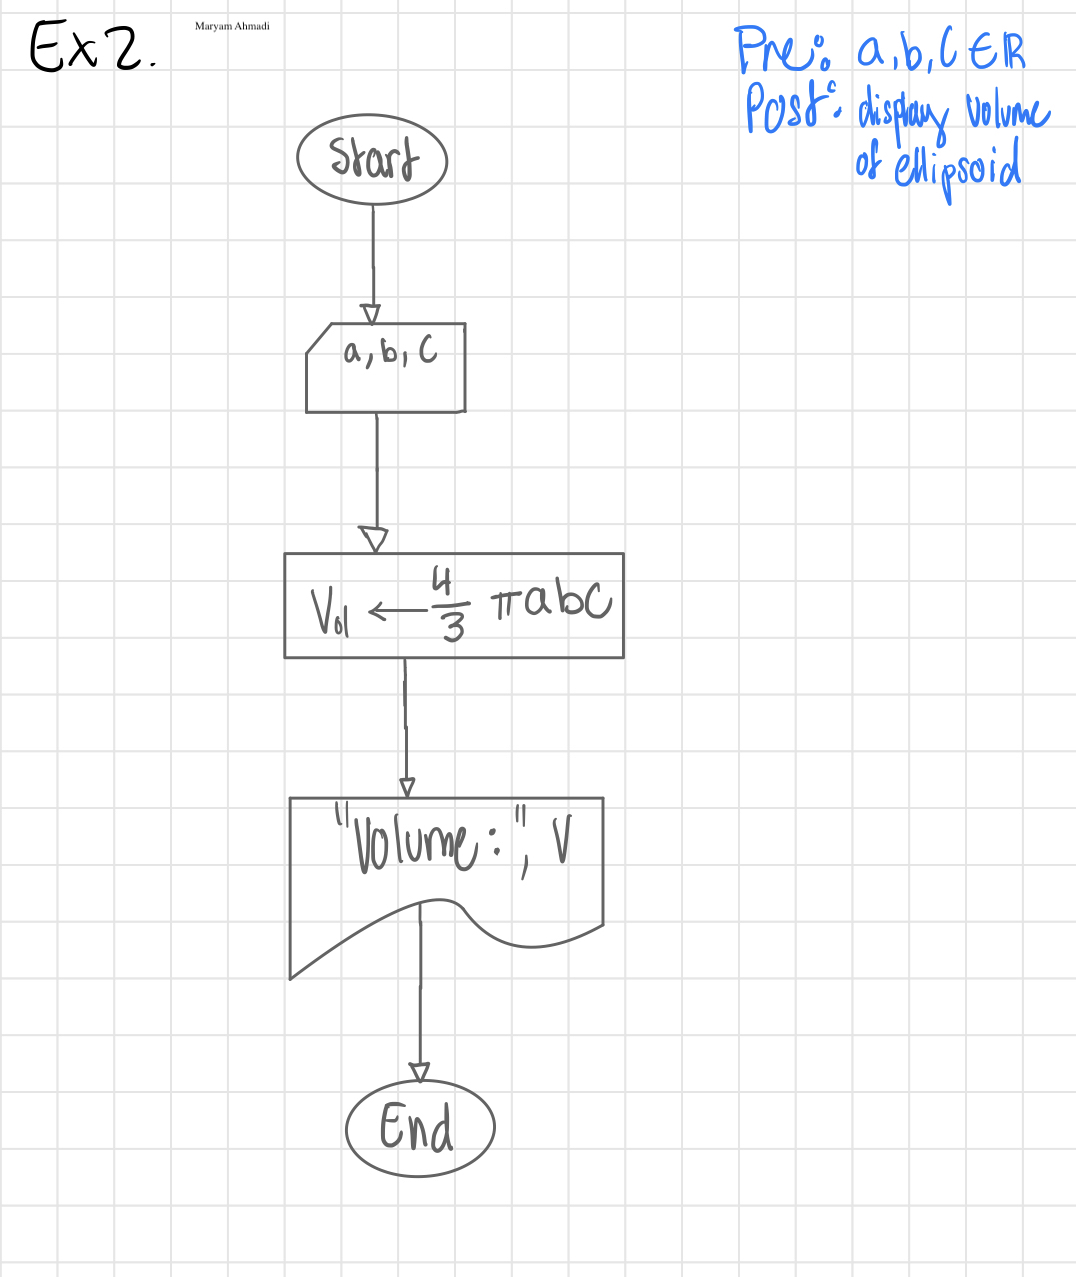 Ex2.
Maryam Ahmadi
Pre: a,b,C ∈ ℝ
Post: display volume
of ellipsoid
Start
a, b, C
Vol ← 4/3 πabC
"Volume:", V
End